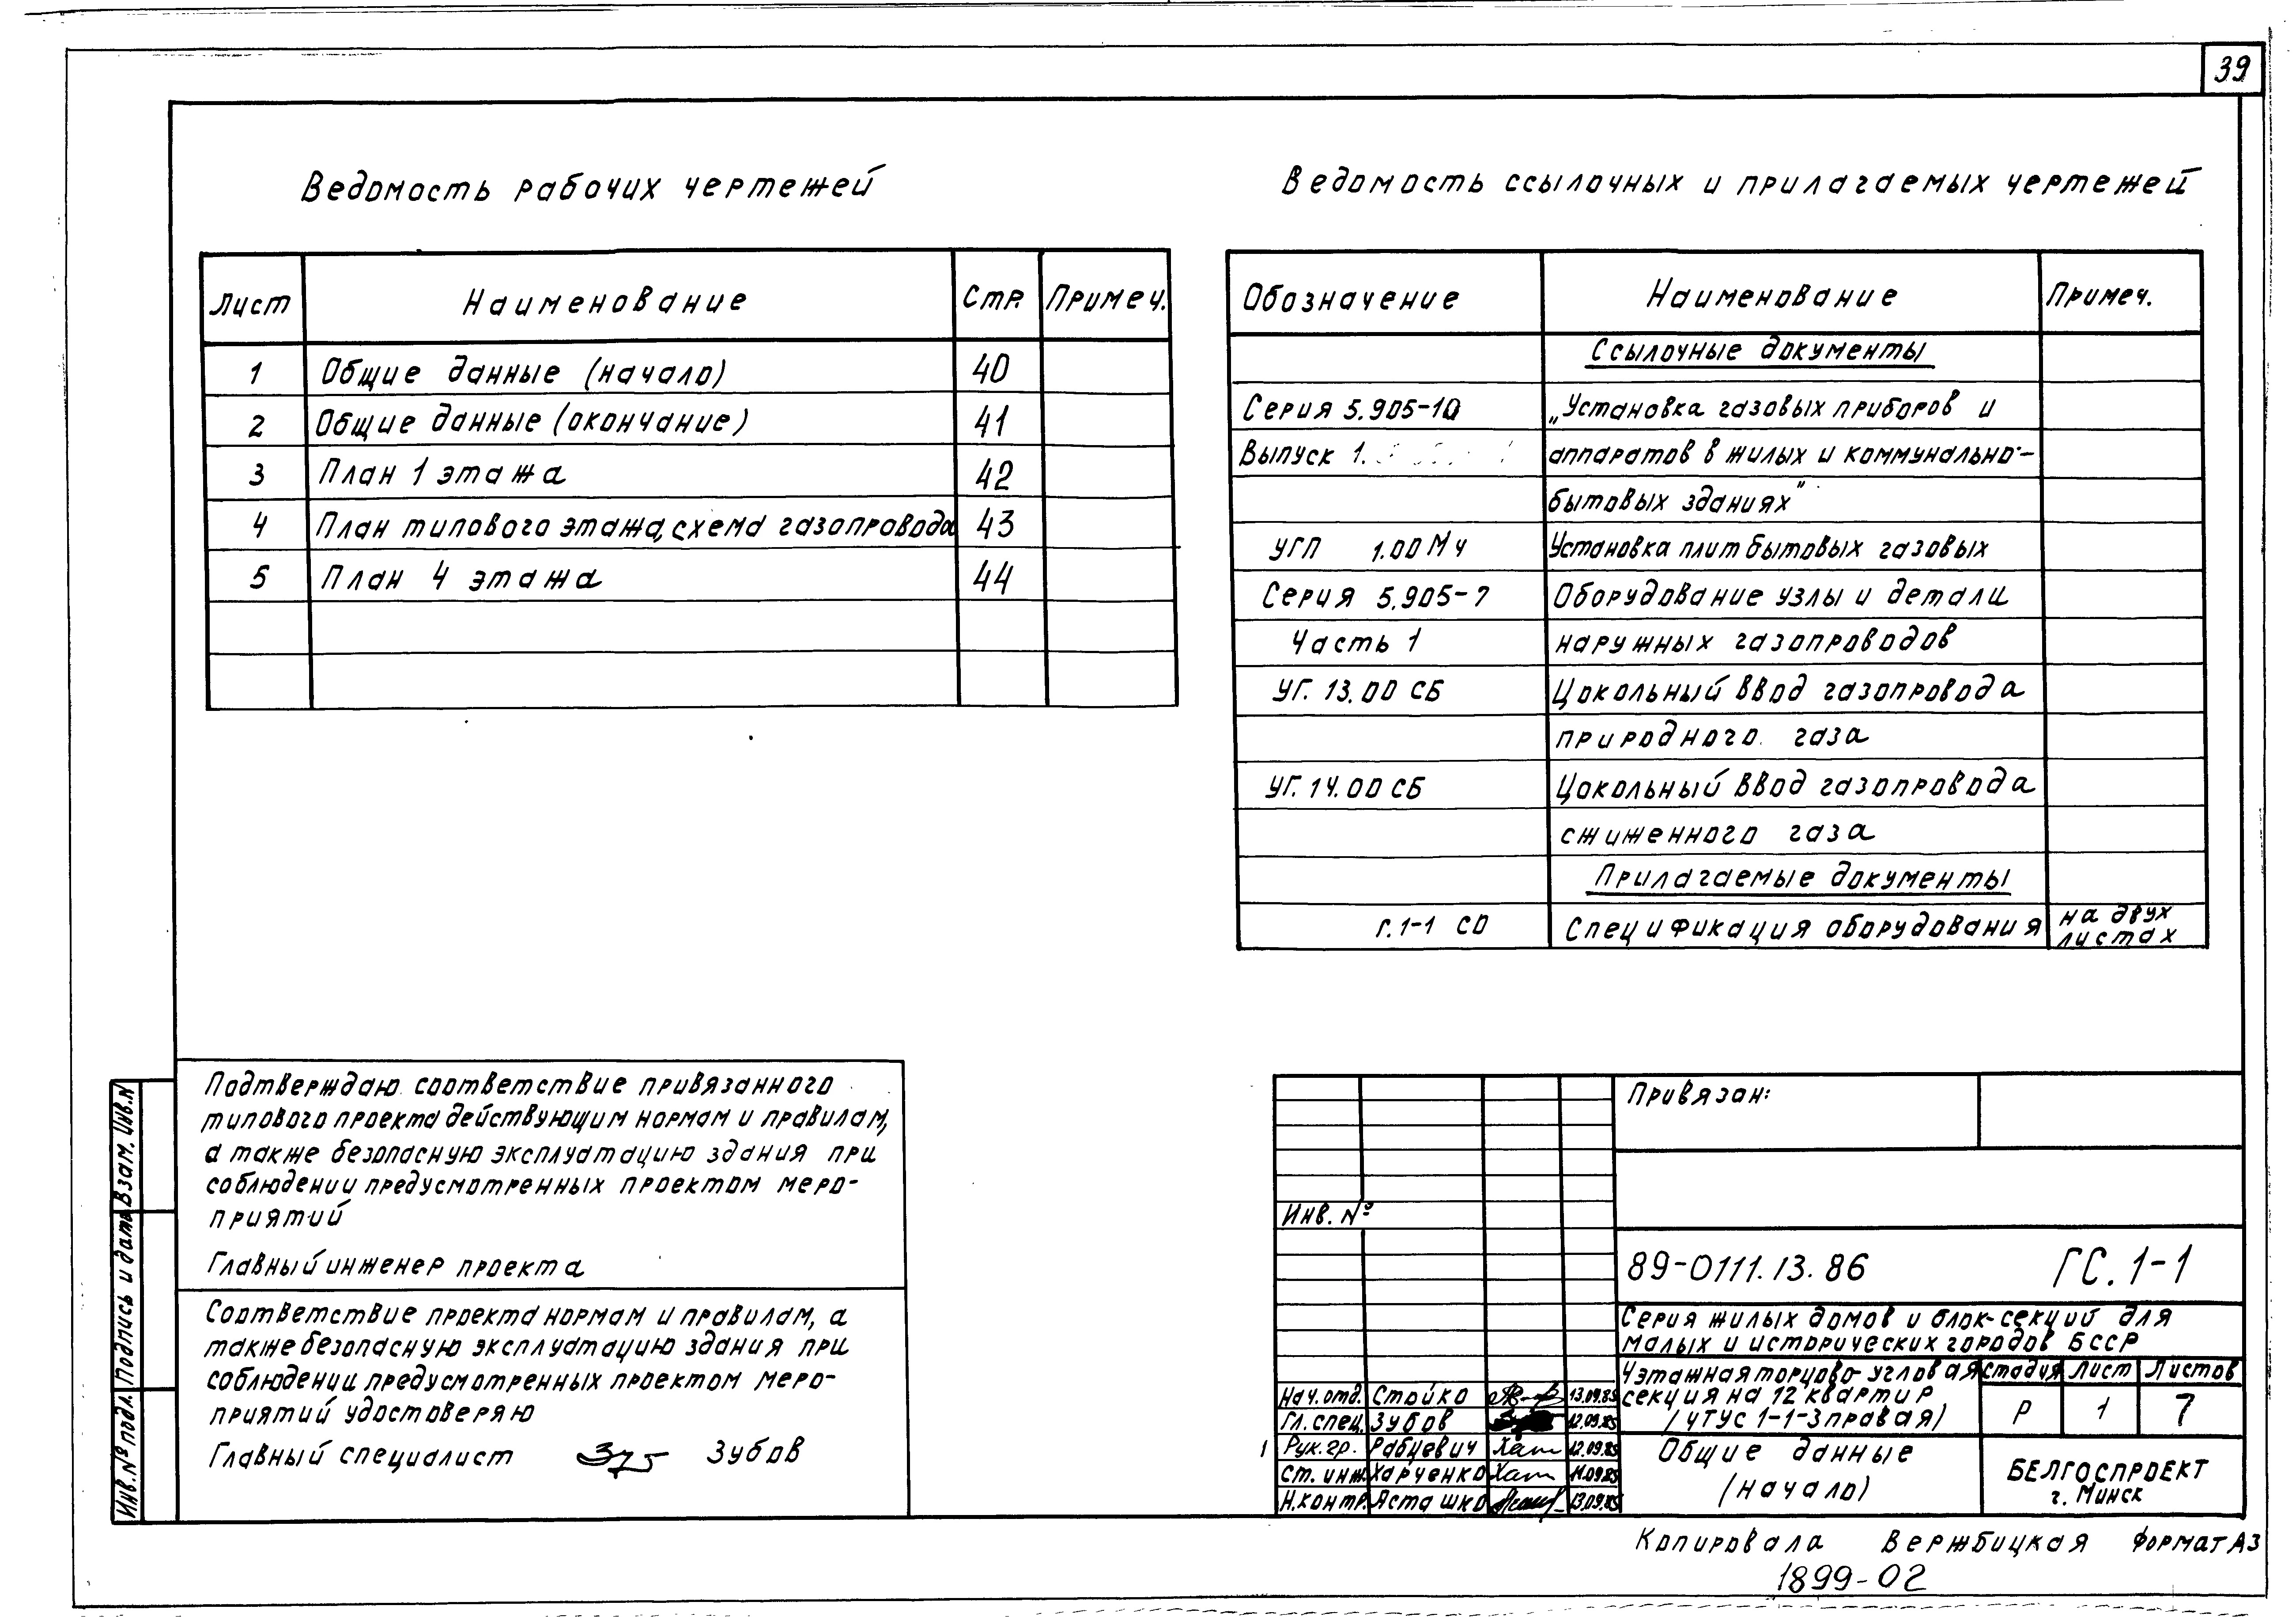 39
Ведомость рабочих чертежей
Лист Наименование Стр. Примеч.
1 Общие данные (начало) 40
2 Общие данные (окончание) 41
3 План 1 этажа 42
4 План типового этажа, схема газопровода 43
5 План 4 этажа 44
Ведомость ссылочных и прилагаемых чертежей
Обозначение Наименование Примеч.
Ссылочные документы
Серия 5.905-10 „Установка газовых приборов и
Выпуск 1. аппаратов в жилых и коммунально-
бытовых зданиях"
УГП 1.00 МЧ Установка плит бытовых газовых
Серия 5.905-7 Оборудование узлы и детали
Часть 1 наружных газопроводов
УГ. 13.00 СБ Цокольный ввод газопровода
природного газа
УГ. 14.00 СБ Цокольный ввод газопровода
сжиженного газа
Прилагаемые документы
Г.1-1 СО Спецификация оборудования на двух
листах
Подтверждаю соответствие привязанного
типового проекта действующим нормам и правилам,
а также безопасную эксплуатацию здания при
соблюдении предусмотренных проектом меро-
приятий
Главный инженер проекта
Соответствие проекта нормам и правилам, а
также безопасную эксплуатацию здания при
соблюдении предусмотренных проектом меро-
приятий удостоверяю
Главный специалист Зубов
Инв. № подл. Подпись и дата Взам. инв. N
Привязан:
Инв. №
89-0111.13.86 ГС.1-1
Серия жилых домов и блок-секций для
малых и исторических городов БССР
4этажная торцово-угловая
секция на 12 квартир
/4ТУС 1-1-3 правая/
Стадия Лист Листов
Р 1 7
Нач. отд. Стойко 13.09.85
Гл. спец. Зубов 12.09.85
1 Рук. гр. Рабцевич 12.09.85
Ст. инж. Харченко 11.09.85
Н.контр. Асташко 13.09.85
Общие данные
/начало/
БЕЛГОСПРОЕКТ
г. Минск
Копировала Вержбицкая Формат А3
1899-02